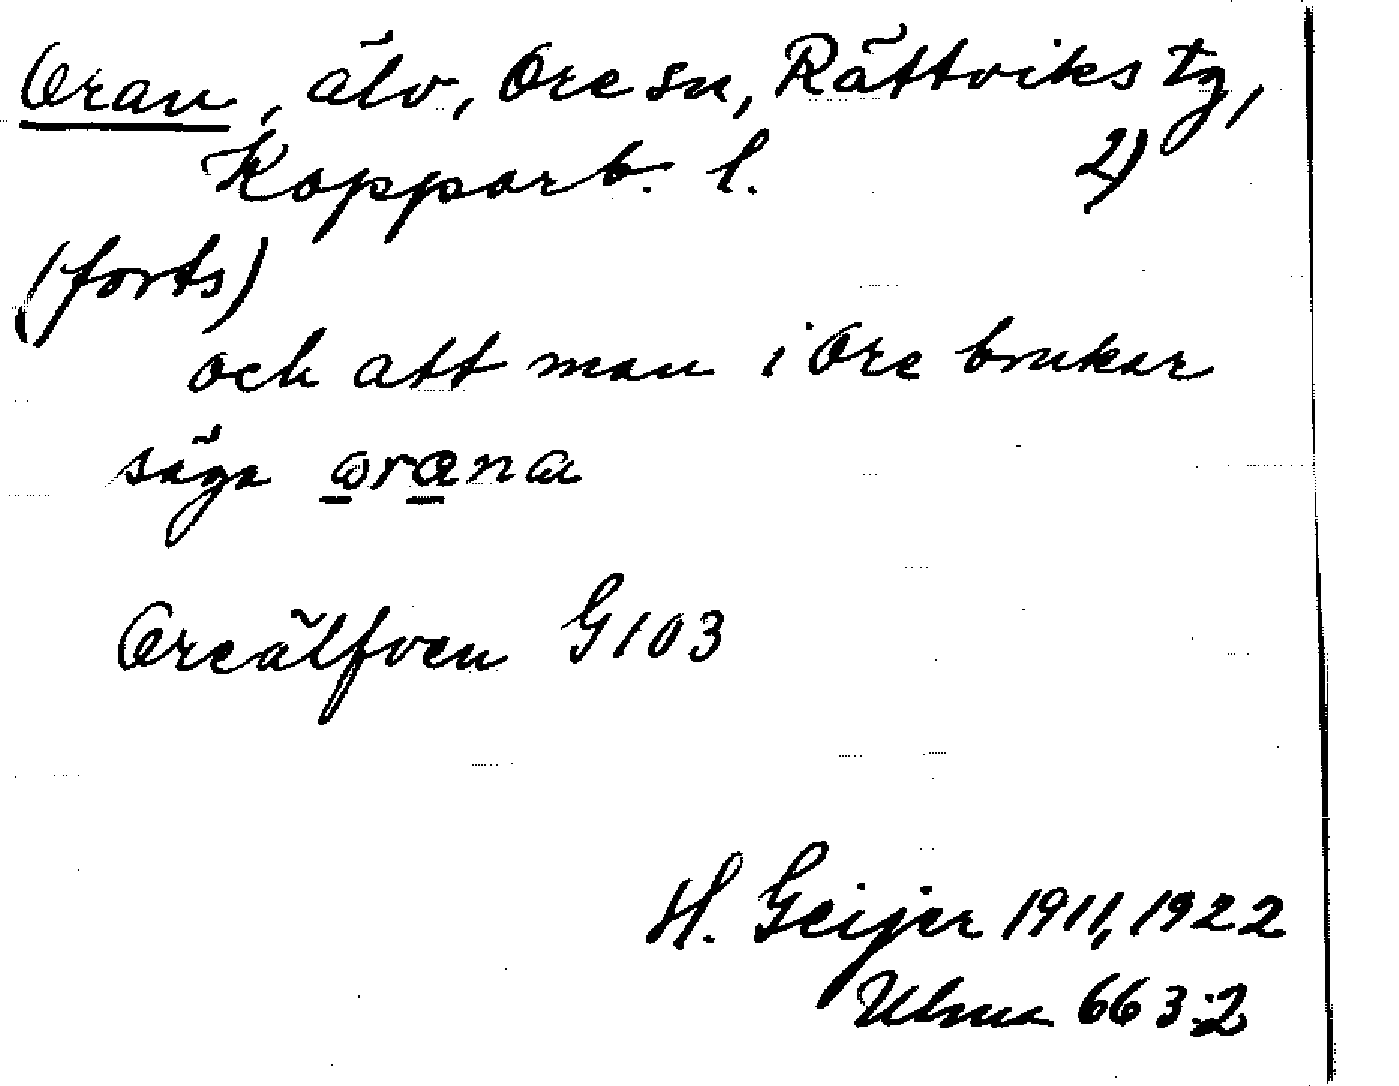 Oran, älv, Ore sn, Rättviks tg,
Kopparb. l. 2)
(forts)
och att man i Ore brukar
säga
Oreälfven G103
H. Geijer 1911, 1922
Ulma 663:2